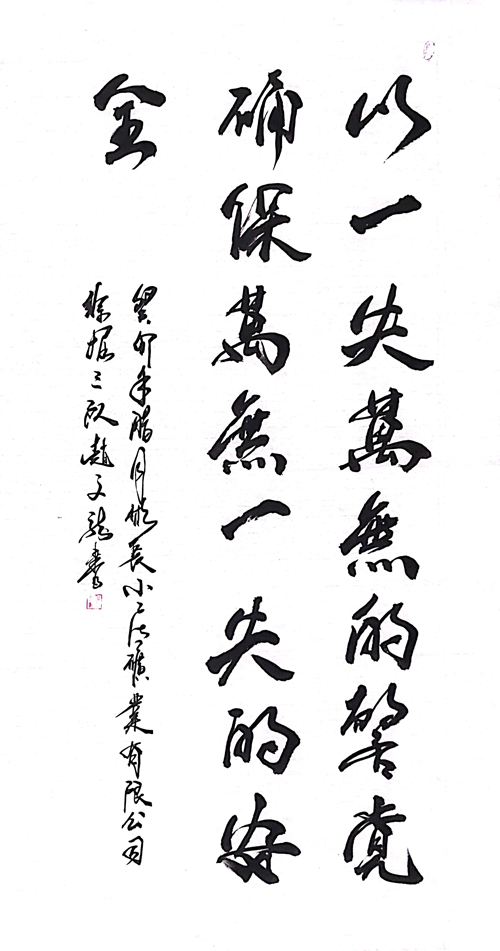 以一失萬無的警覺
确保萬無一失的安
全
癸卯年腊月於長小二法礦業有限公司
綜掘三队趙文龍書